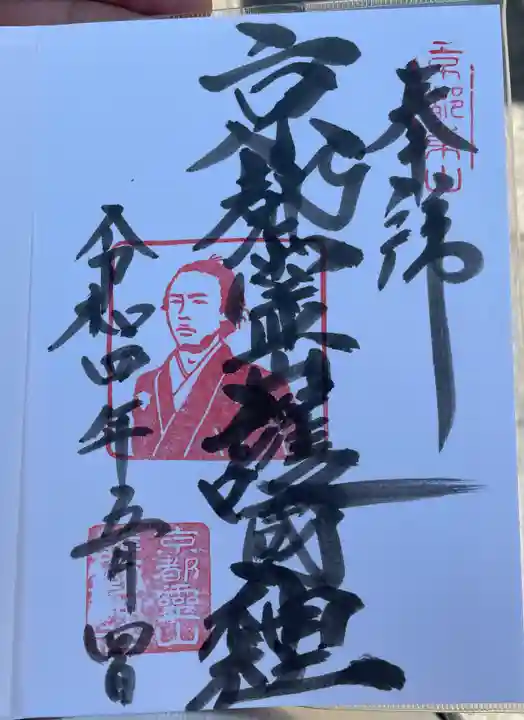 奉拝
京都東山
京都霊山護国神社
令和四年五月四日
京都霊山